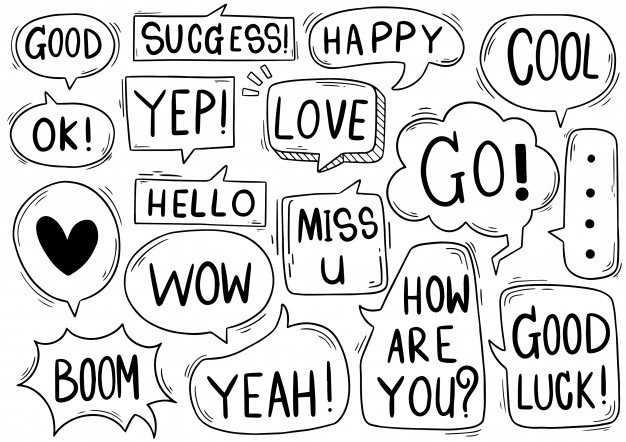 GOOD
SUCCESS!
HAPPY
COOL
OK!
YEP!
LOVE
GO!
HELLO
MISS
U
WOW
HOW
ARE
YOU?
GOOD
LUCK!
BOOM
YEAH!